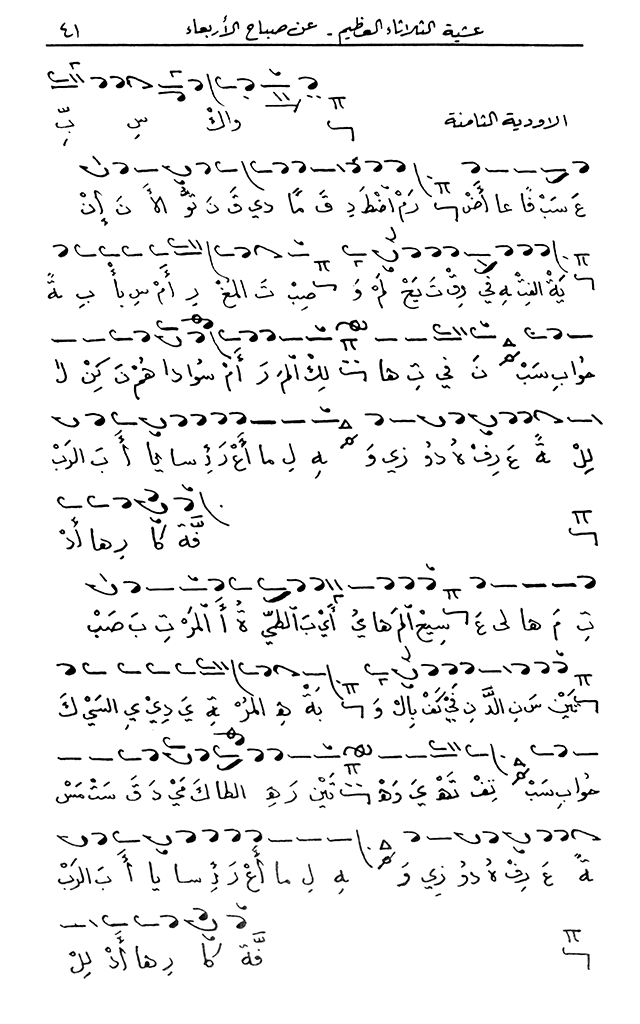 عشية الثلاثاء العظيم - عن صباح الأربعاء ٤١
الاودية الثامنة واكْ سِ بِّ
عَ سَبْ قًا عا أَضْ رَمْ اضْطَ دِ قَ مًا دي قَ نَ تُو الأَ نَ إِنْ
يَةَ الفِتْ هِ في رِقْ تَ يَحْ لَمْ وَ صِبْ تَ المُغْ رِ أَمْ سِ بأْ بِ ةً
جواب سَبْ نَ في تِ ها لِكْ المَ رَ أَمْ سوادا هُمْ نَ كِنْ لٰ
لِلْ ةً عَ رِفْ هُ دو زي وَ هِ لِ ما أَعْ رَئِ سا يا أَ بَ الرَبْ
فَّةَ كا رِها أَدْ
تِ مَ ها لى عَ سيحْ المَ هاي أَيْ بَ الطيِّ ةُ أَ المَرْ تِ بَ صَبْ
سَ نِ الدَّ نِ في نَفْ باك وَ بَةْ هِ المُرْ ةِ يَ دِيْ يِ السَيْ كَ
جواب سَبْ تِفْ تَهْ يَ وَهْ نَيْنْ رَهِ الطا كَ مَيْ دَ قَ سَتْ مَسْ
ةً عَ رِفْ هُ دو زي وَ هِ لِ ما أَعْ رَئِ سا يا أَ بَ الرَبْ
فَّةَ كا رِها أَدْ لِلْ